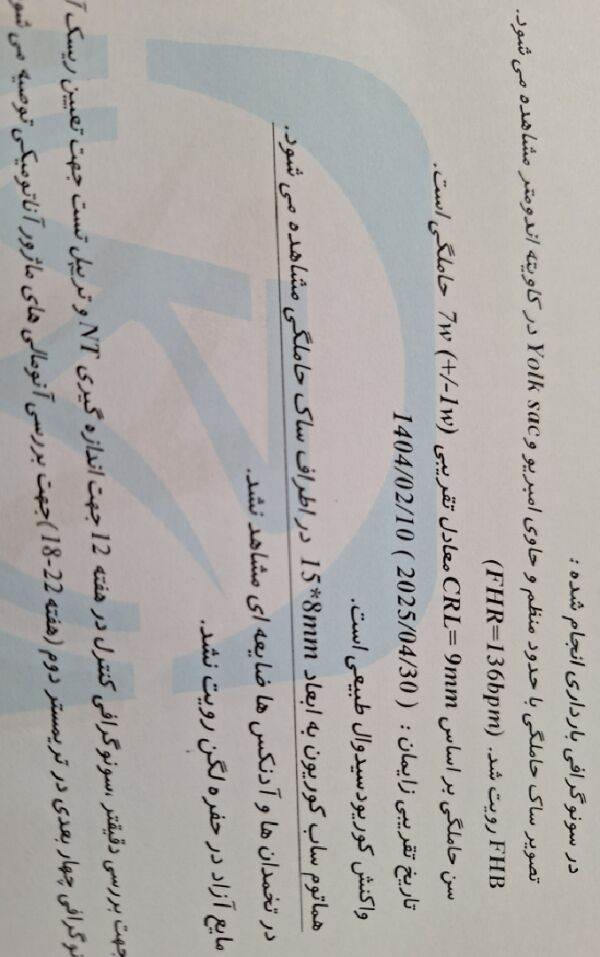 در سونوگرافی بارداری انجام شده :
تصویر ساک حاملگی با حدود منظم و حاوی امبریو و Yolk sac در کاویته اندومتر مشاهده می شود.
FHB رویت شد. (FHR=136bpm)
سن حاملگی بر اساس CRL= 9mm معادل تقریبی 7w (+/-1w) حاملگی است.
تاریخ تقریبی زایمان : ( 2025/04/30 ) 1404/02/10
واکنش کوریودسیدوال طبیعی است.
هماتوم ساب کوریون به ابعاد 15*8mm در اطراف ساک حاملگی مشاهده می شود.
در تخمدان ها و آدنکس ها ضایعه ای مشاهد نشد.
مایع آزاد در حفره لگن رویت نشد.
جهت بررسی دقیقتر ,سونوگرافی کنترل در هفته 12 جهت اندازه گیری NT و تریپل تست جهت تعیین ریسک
چهار بعدی در تریمستر دوم (هفته 22-18) جهت بررسی آنومالی های ماژور آناتومیکی توصیه می